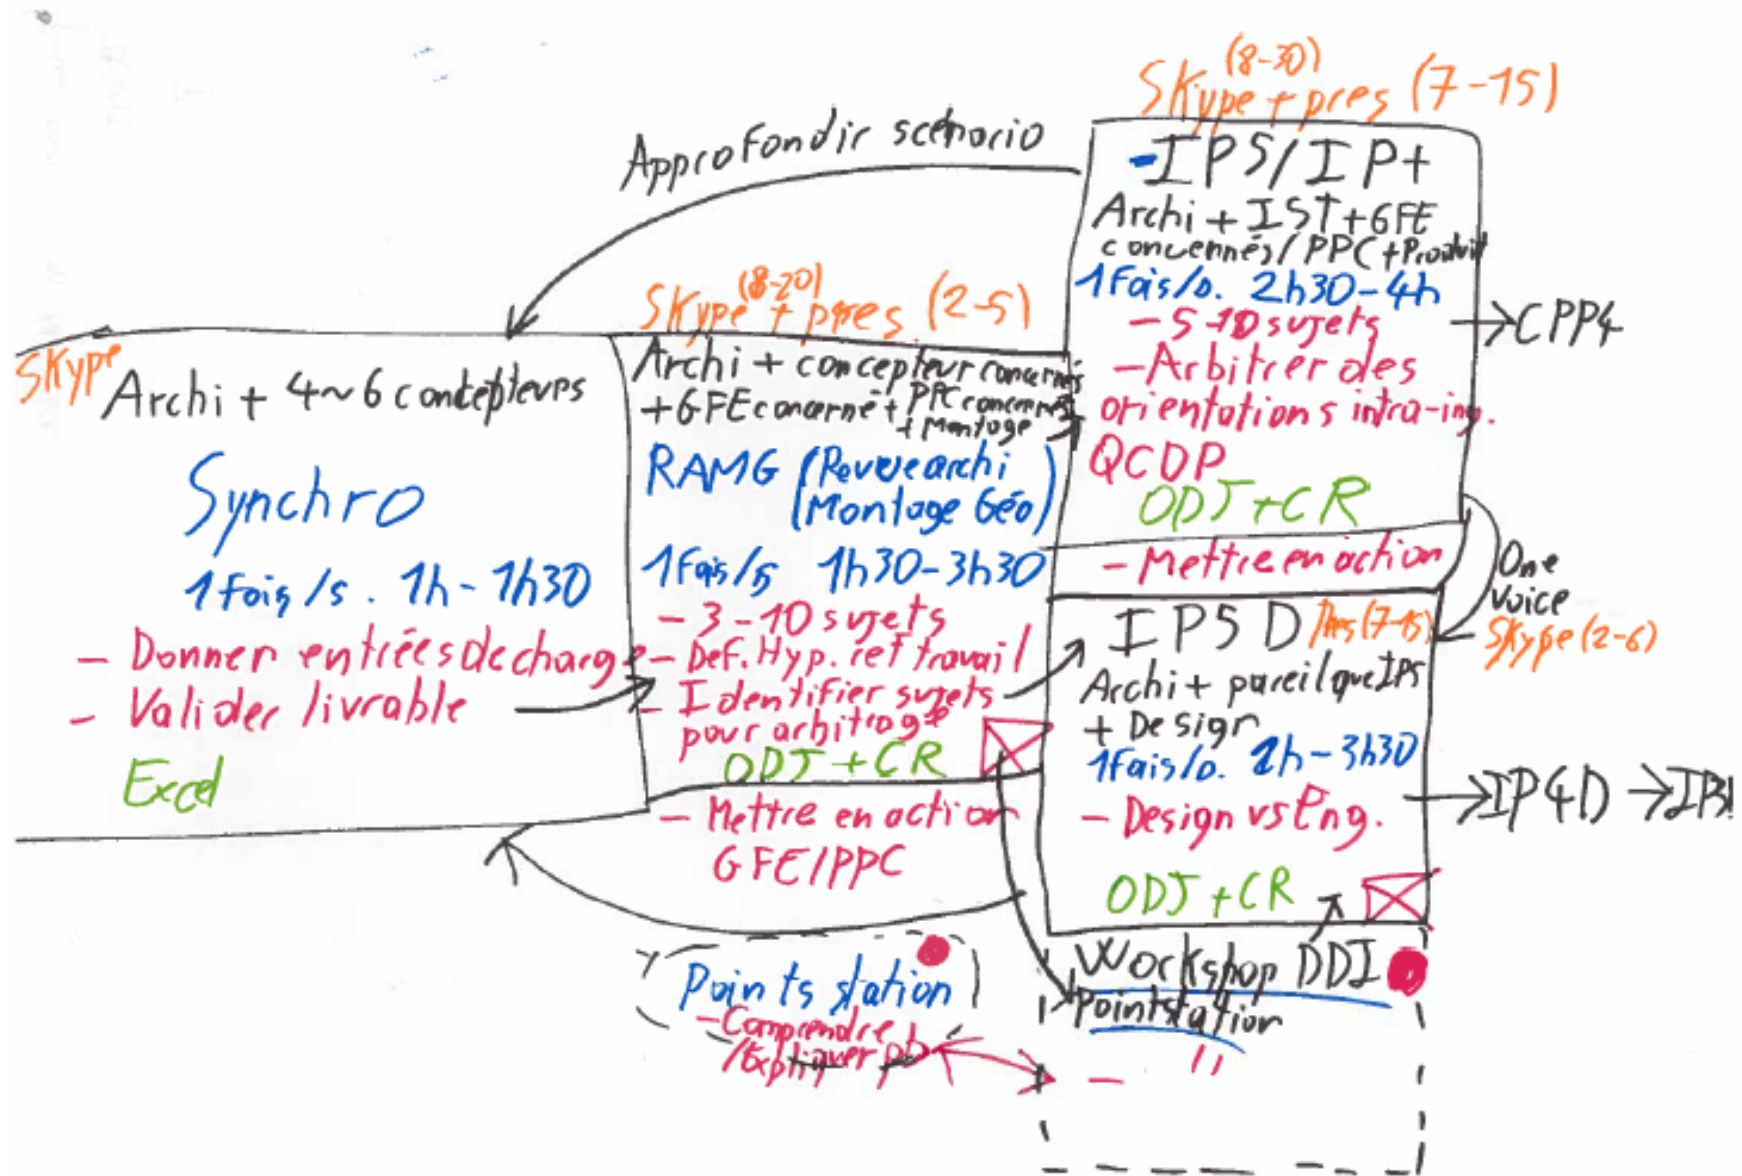 Approfondir scénario
Skype
Archi + 4~6 concepteurs
Synchro
1 fois/s. 1h-1h30
- Donner entrées de charge
- Valider livrable
Excel
(8-20)
Skype + pres (2-5)
Archi + concepteur concernés
+ GFE concerné + PPC concernés
+ Montage
RAMG (Revue archi
(Montage Géo)
1 fois/s 1h30-3h30
- 3-10 sujets
- Def. Hyp. ref travail
- Identifier sujets
pour arbitrage
ODJ + CR
- Mettre en action
GFE/PPC
Points station
- Comprendre
/Expliquer pb
(8-30)
Skype + pres (7-15)
- IPS/IP+
Archi + IST + GFE
concernés/PPC + Produit
1 fois/s. 2h30-4h
- 5-10 sujets
- Arbitrer des
orientations intra-ing.
QCDP
ODJ + CR
- Mettre en action
→ CPP4
One
Voice
Skype (2-6)
IPSD Pres (7-15)
Archi + pareil que IPS
+ Design
1 fois/s. 2h-3h30
- Design vs Eng.
ODJ + CR
→ IP4D →
Workshop DDI
Point station
- "